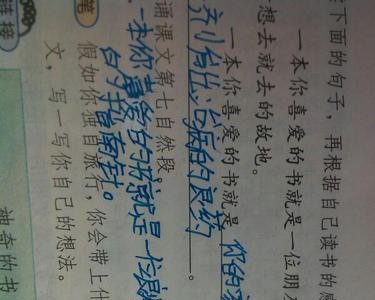 下面的句子，再根据自己读书的感
一本你喜爱的书就是一位朋
想去就去的故地。
一本你喜爱的书就是 你的
治病的良药。
诵课文第七自然段
一本你喜爱的书就是一
的指南针。
笔
假如你独自旅行，你会带上什
文，写一写你自己的想法。
链接
神奇的书